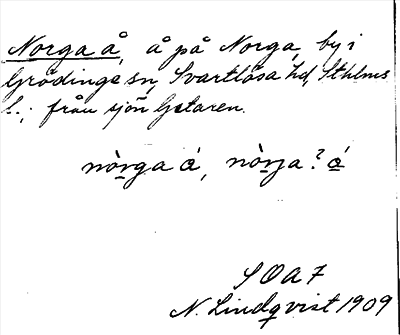 Norga å, å på Norga, by i
Grödinge sn, Svartlösa hd, Sthlms
l.; från sjön Getaren.
nòrga á, nòrja? á
S O A 7
N. Lindqvist 1909